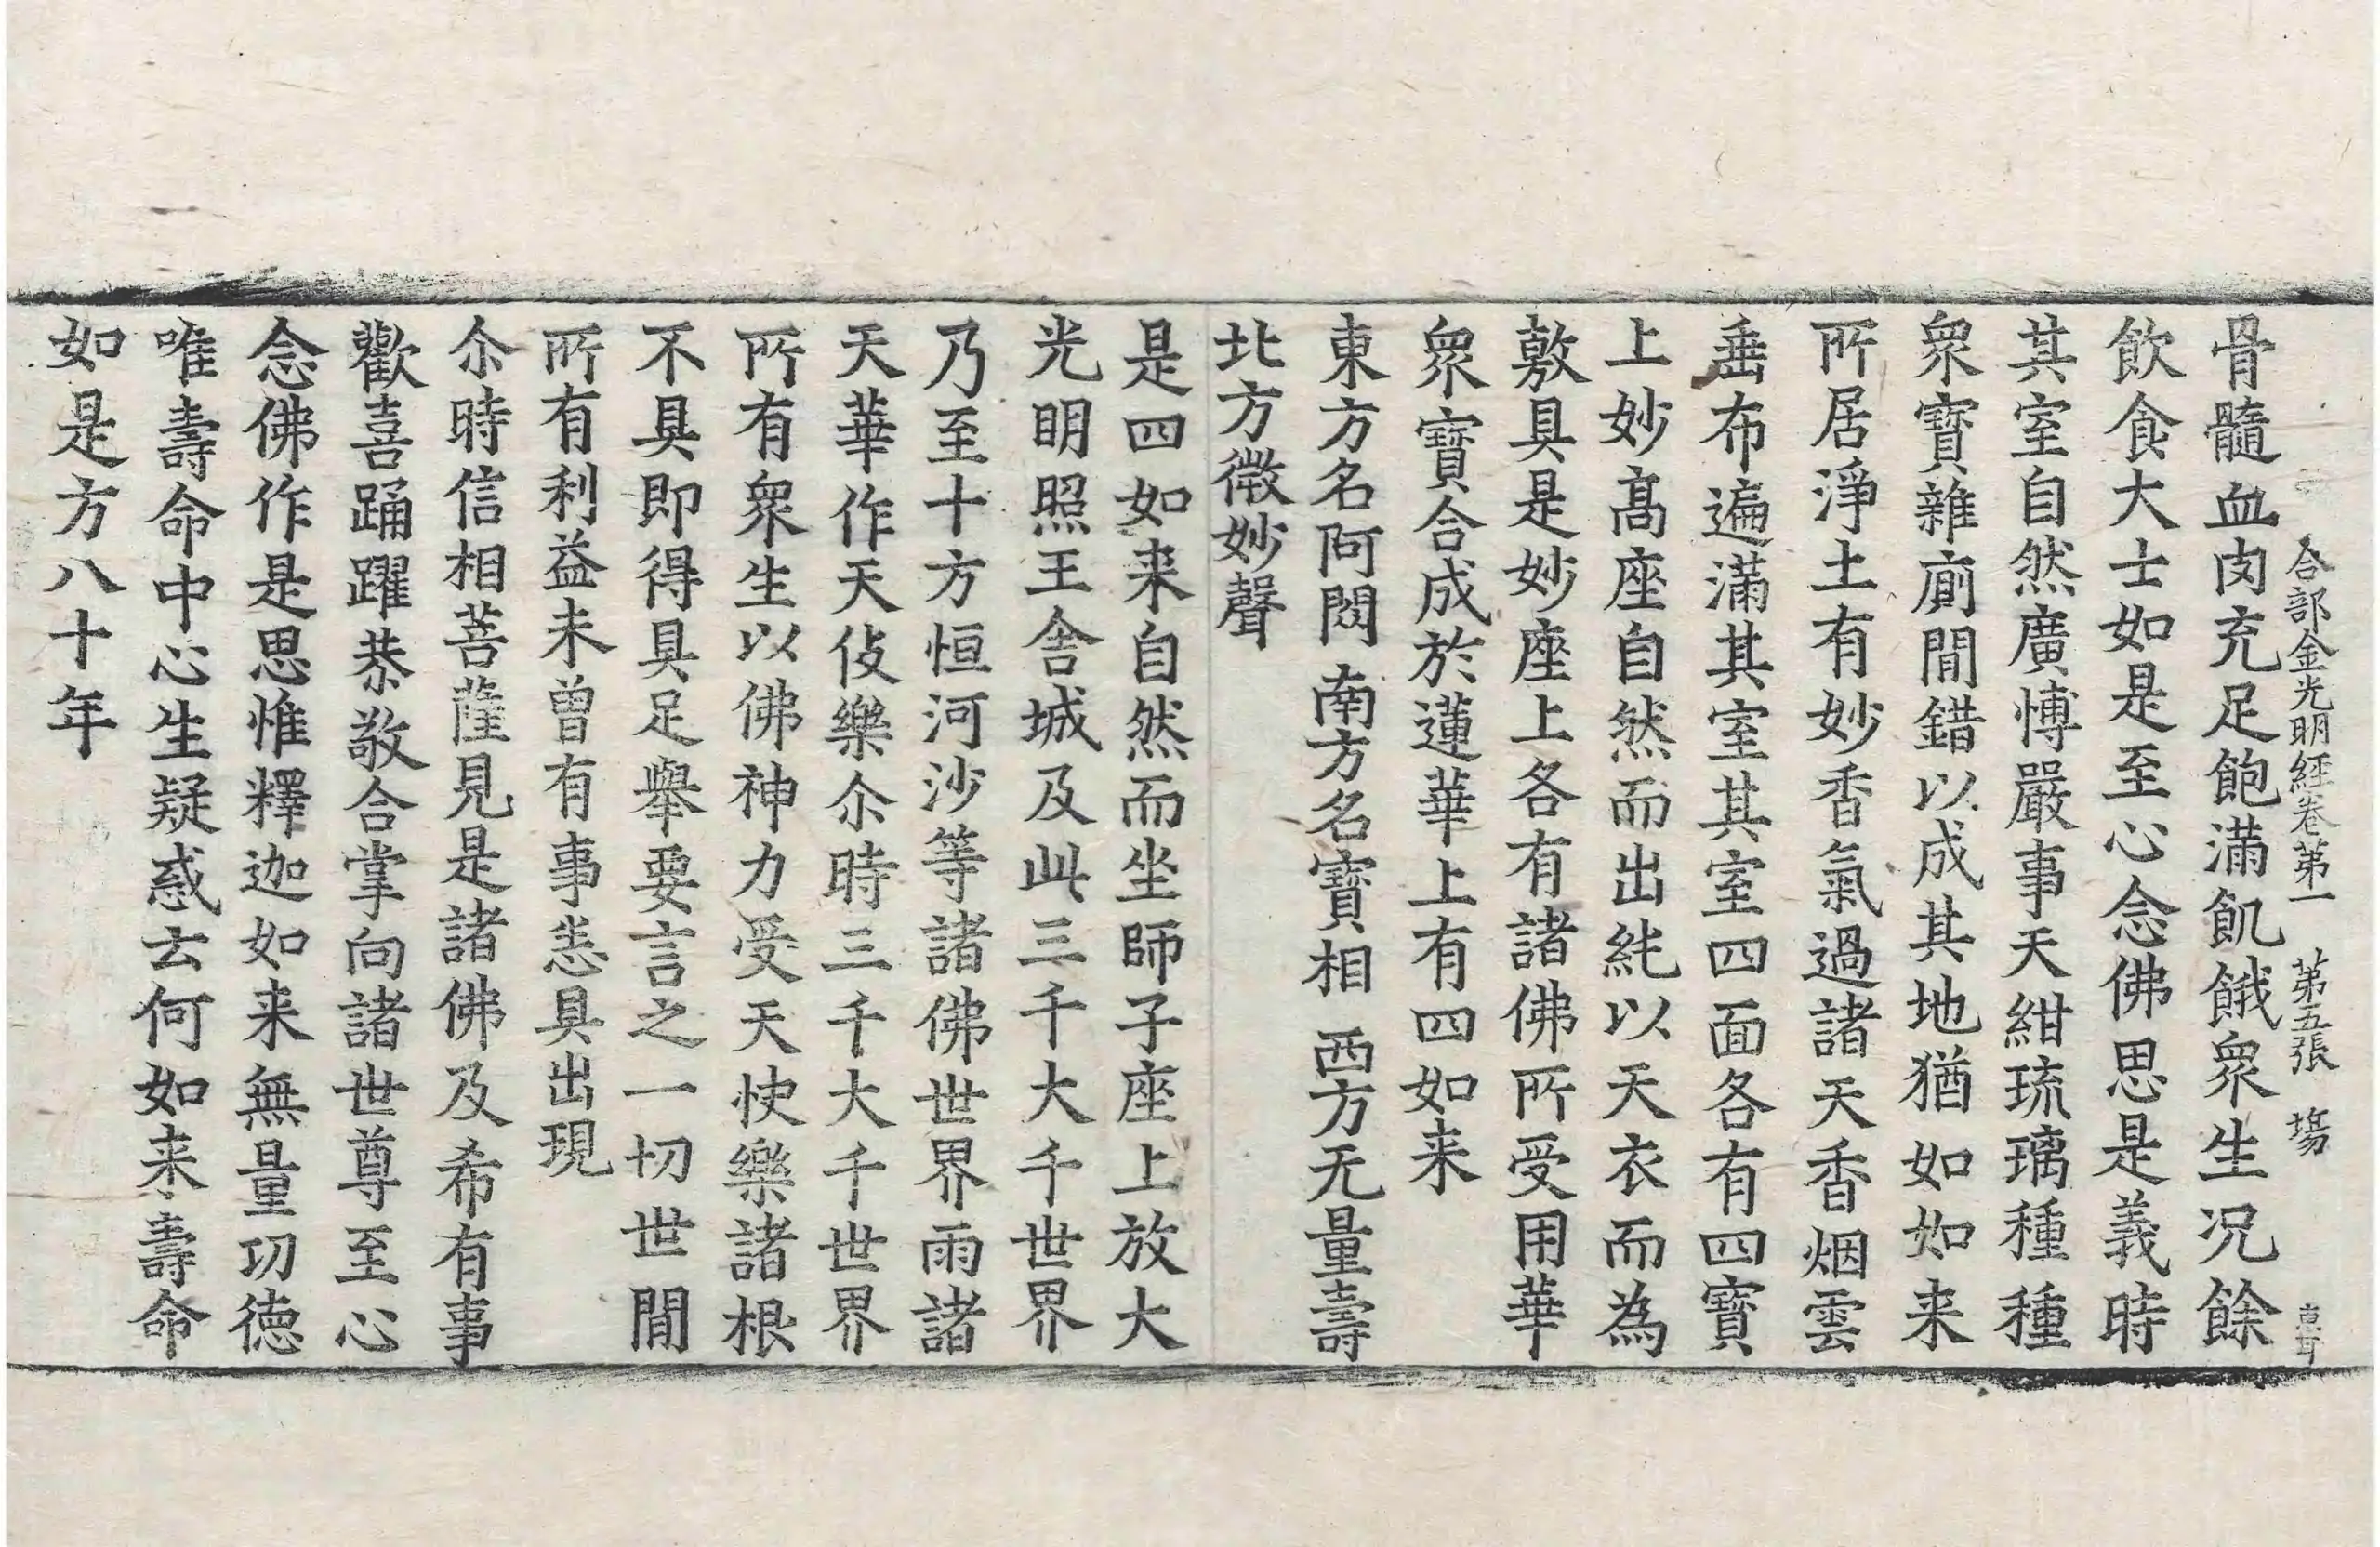 合部金光明經卷第一 第五張 塲
骨髓血肉充足飽滿飢餓衆生况餘
飲食大士如是至心念佛思是義時
其室自然廣愽嚴事天紺琉璃種種
衆寶雜廁閒錯以成其地猶如如来
所居淨土有妙香氣過諸天香烟雲
垂布遍滿其室其室四面各有四寶
上妙髙座自然而出紌以天衣而為
敷具是妙座上各有諸佛所受用華
衆寶合成於蓮華上有四如来
東方名阿閦 南方名寶相 西方无量壽
北方微妙聲
是四如来自然而坐師子座上放大
光明照王舍城及此三千大千世界
乃至十方恒河沙等諸佛世界雨諸
天華作天伎樂尒時三千大千世界
所有衆生以佛神力受天快樂諸根
不具即得具足舉要言之一切世閒
所有利益未曽有事悉具出現
尒時信相菩薩見是諸佛及希有事
歡喜踊躍恭敬合掌向諸世尊至心
念佛作是思惟釋迦如来無量功徳
唯壽命中心生疑惑云何如来壽命
如是方八十年